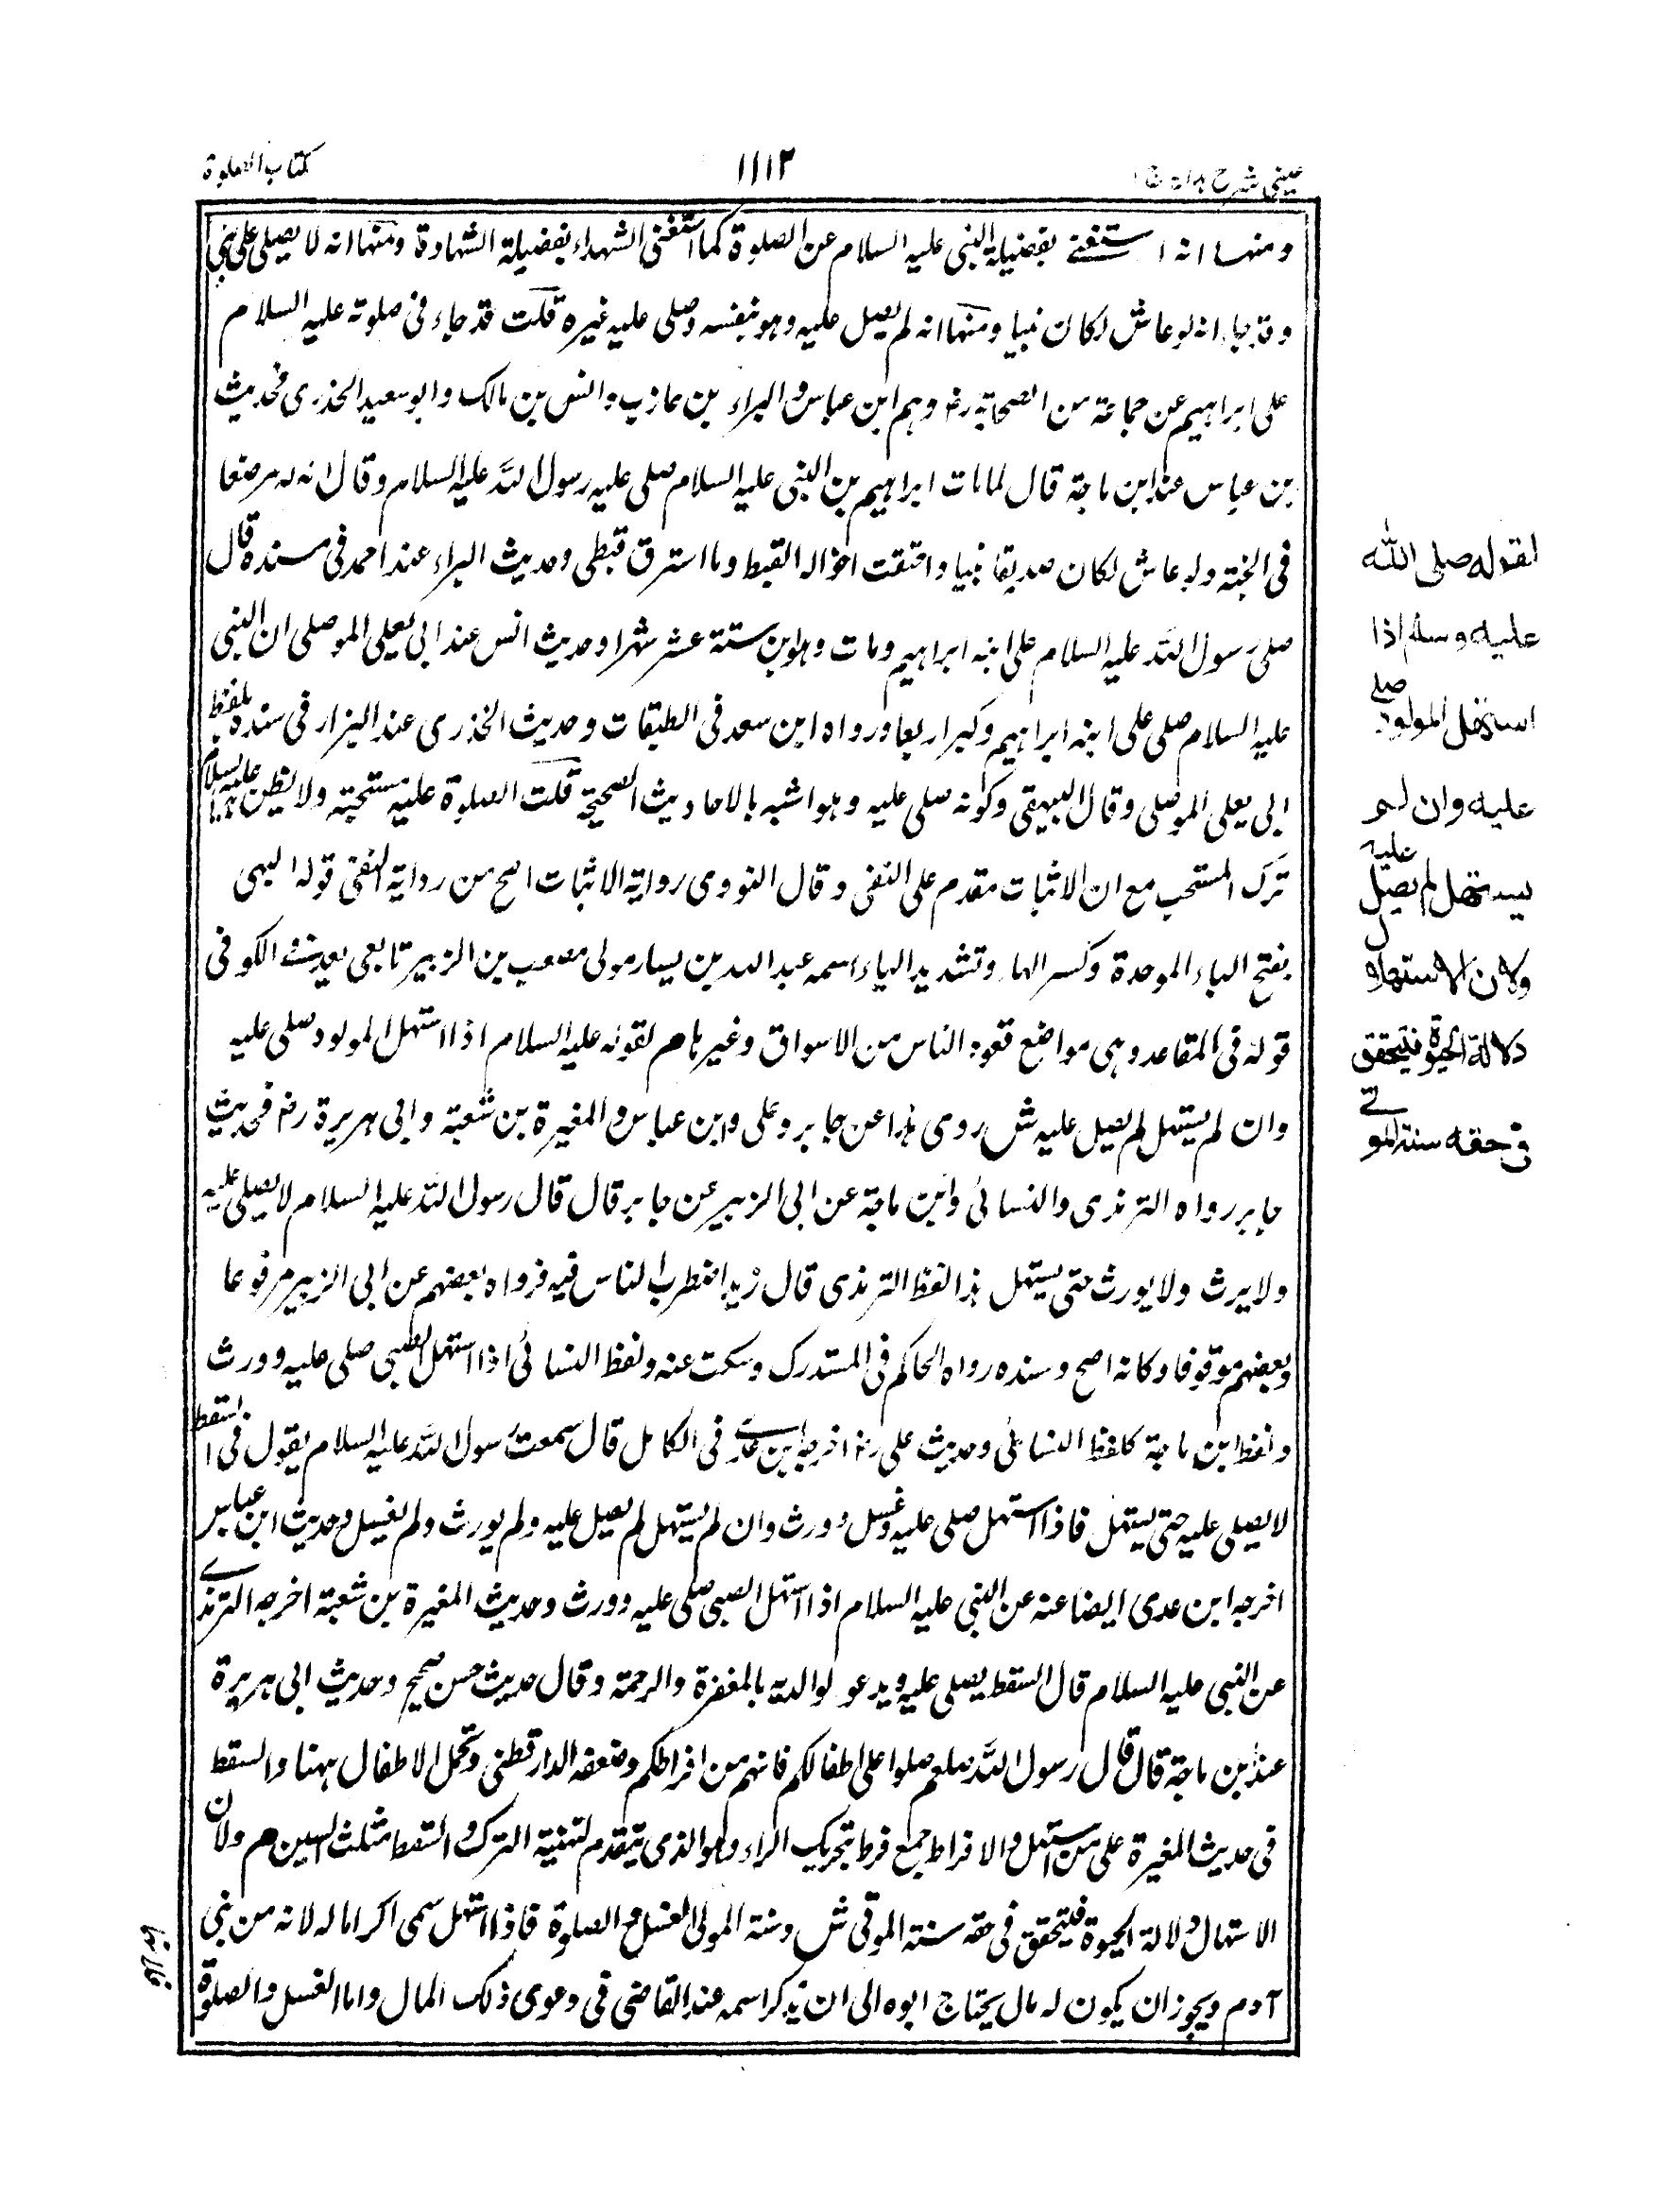 كتاب الصلوة
١١١٢
عيني شرح هداية ج ١
ومنها انه استغنى بفضيلة النبي عليه السلام عن الصلوة كما استغنى الشهداء بفضيلة الشهادة ومنها انه لا يصلي على نبي
وقد جاء انه لو عاش لكان نبيا ومنها انه لم يصل عليه وهو بنفسه وصلى عليه غيره قلت قد جاء في صلوته عليه السلام
على ابراهيم عن جماعة من الصحابة رضـ وهم ابن عباس والبراء بن عازب وانس بن مالك وابو سعيد الخذرى فحديث
بن عباس عند ابن ماجة قال لما مات ابراهيم بن النبي عليه السلام صلى عليه رسول الله عليه السلام وقال انه له مرضعا
في الجنة ولو عاش لكان صديقا نبيا واعتقت اخواله القبط وما استرق قبطى وحديث البراء عند احمد في مسنده قال
صلى رسول الله عليه السلام على ابنه ابراهيم ومات وهو ابن ستة عشر شهرا وحديث انس عند ابي يعلى الموصلى ان النبي
عليه السلام صلى على ابنه ابراهيم وكبر اربعا ورواه ابن سعد في الطبقات وحديث الخذرى عند البزار في سنده بلفظ
ابي يعلى الموصلى وقال البيهقي وكونه صلى عليه وهو اشبه بالاحاديث الصحيحة قلت الصلوة عليه مستحبة ولا يظن عليه السلام
ترك المستحب مع ان الاثبات مقدم على النفى وقال النووى رواية الاثبات اصح من رواية النفى قوله البهى
بفتح الباء الموحدة وكسر الهاء وتشديد الياء اسمه عبد الله بن يسار مولى مصعب بن الزبير تابعي يعد في الكوفى
قوله في المقاعد وهى مواضع قعود الناس من الاسواق وغيرها م لقوله عليه السلام اذا استهل المولود صلى عليه
وان لم يستهل لم يصل عليه ش روى هذا عن جابر وعلى وابن عباس والمغيرة بن شعبة وابى هريرة رضـ فحديث
جابر رواه الترمذى والنسائى وابن ماجة عن ابى الزبير عن جابر قال قال رسول الله عليه السلام لا يصلى عليه
ولا يرث ولا يورث حتى يستهل هذا لفظ الترمذى قال زيد اضطرب الناس فيه فرواه بعضهم عن ابى الزبير مرفوعا
وبعضهم موقوفا وكانه اصح وسنده رواه الحاكم في المستدرك وسكت عنه ولفظ النسائى اذا استهل الصبى صلى عليه وورث
ولفظ ابن ماجة كلفظ النسائى وحديث على رضـ اخرجه ابن عدى في الكامل قال سمعت رسول الله عليه السلام يقول في السقط
لا يصلى عليه حتى يستهل فاذا استهل صلى عليه وغسل وورث وان لم يستهل لم يصل عليه ولم يورث ولم يغسل وحديث ابن عباس
اخرجه ابن عدى ايضا عنه عن النبي عليه السلام اذا استهل الصبى صلى عليه وورث وحديث المغيرة بن شعبة اخرجه الترمذى
عن النبي عليه السلام قال السقط يصلى عليه ويدعو لوالديه بالمغفرة والرحمة وقال حديث حسن صحيح وحديث ابى هريرة
عند ابن ماجة قال قال رسول الله صلعم صلوا على اطفالكم فانهم من افراطكم وضعفه الدارقطنى وتحمل الاطفال ههنا والسقط
في حديث المغيرة على من استهل والافراط جمع فرط بتحريك الراء وهو الذى يتقدم لتهيئة الترك والسقط مثلث السين م ولان
الاستهلال دلالة الحيوة فيتحقق في حقه سنة الموتى ش وسنة المولى الغسل مع الصلوة فاذا استهل سمى اكراما له لانه من بنى
آدم ويجوز ان يكون له مال يحتاج ابوه الى ان يذكر اسمه عند القاضى في دعوى ذلك المال واما الغسل والصلوة
لقوله صلى الله
عليه وسلم اذا
استهل المولود صلى
عليه وان لم
يستهل لم يصل عليه
ولان الاستهلال
دلالة الحيوة فيتحقق
فى حقه سنة الموتى